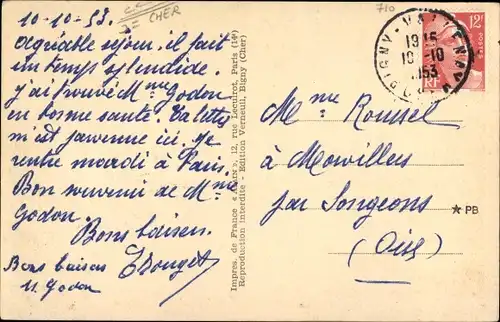 10-10-53.
agréable séjour, il fait
un temps splendide.
j'ai trouvé Mme Godon
en bonne santé. Ta lettre
m'est parvenue ici. Je
rentre mardi à Paris.
Bon souvenir de Mme
Godon
Bons baisers.
Bons baisers
M. Godon
CHER
Impres. de France 12, rue Lecuirot, Paris (14e)
Reproduction interdite - Edition Verneuil, Bigny (Cher)
710
BIGNY-VALLENAY
1915
10-10
1953
12F
POSTES
RF
Mme Roussel
à Morvillers
par Songeons
(Oise)
★ PB